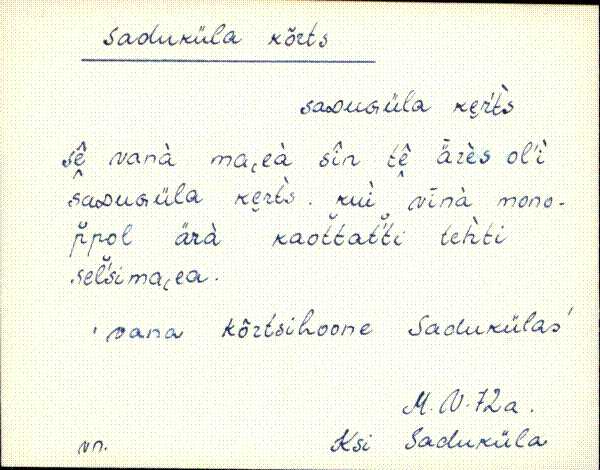 Saduküla kõrts
saᴅuɢüla ke̮r̀t̀s
sê̬ vanà maᴊ̜eà sîn tê̬ ä̀rès ol'ì
saᴅuɢüla ke̮r̀t̀s. kuì vīnà mono-
p̆pol ärà kaot̆tat̆'ti tehti
sel̆'simaᴊ̜ea.
'vana kõrtsihoone Sadukülas'
M. N. 72a.
vn. Ksi Saduküla